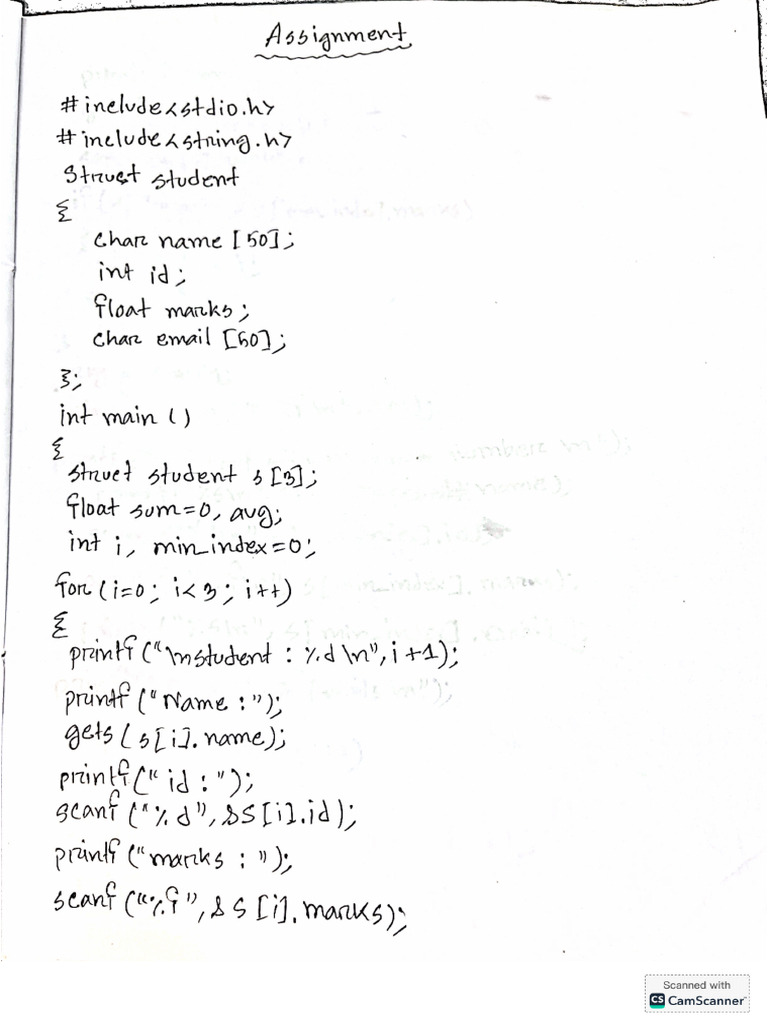 Assignment
#include<stdio.h>
#include<string.h>
Struct student
{
char name [50];
int id;
float marks;
char email [50];
};
int main ()
{
struct student s [3];
float sum=0, avg;
int i, min_index=0;
for (i=0; i<3; i++)
{
printf("\nstudent : %d\n", i+1);
printf("Name :");
gets(s[i].name);
printf("id :");
scanf("%d", &S[i].id);
printf("marks : ");
scanf("%f", &S[i].marks);
Scanned with
CS CamScanner